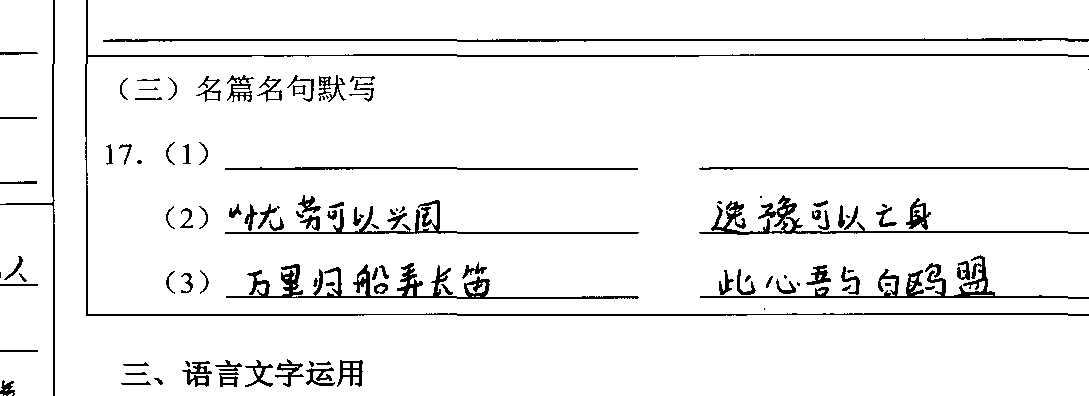 （三）名篇名句默写
17.（1）
（2）“忧劳可以兴国 逸豫可以亡身
（3）万里归船弄长笛 此心吾与白鸥盟
人
三、语言文字运用